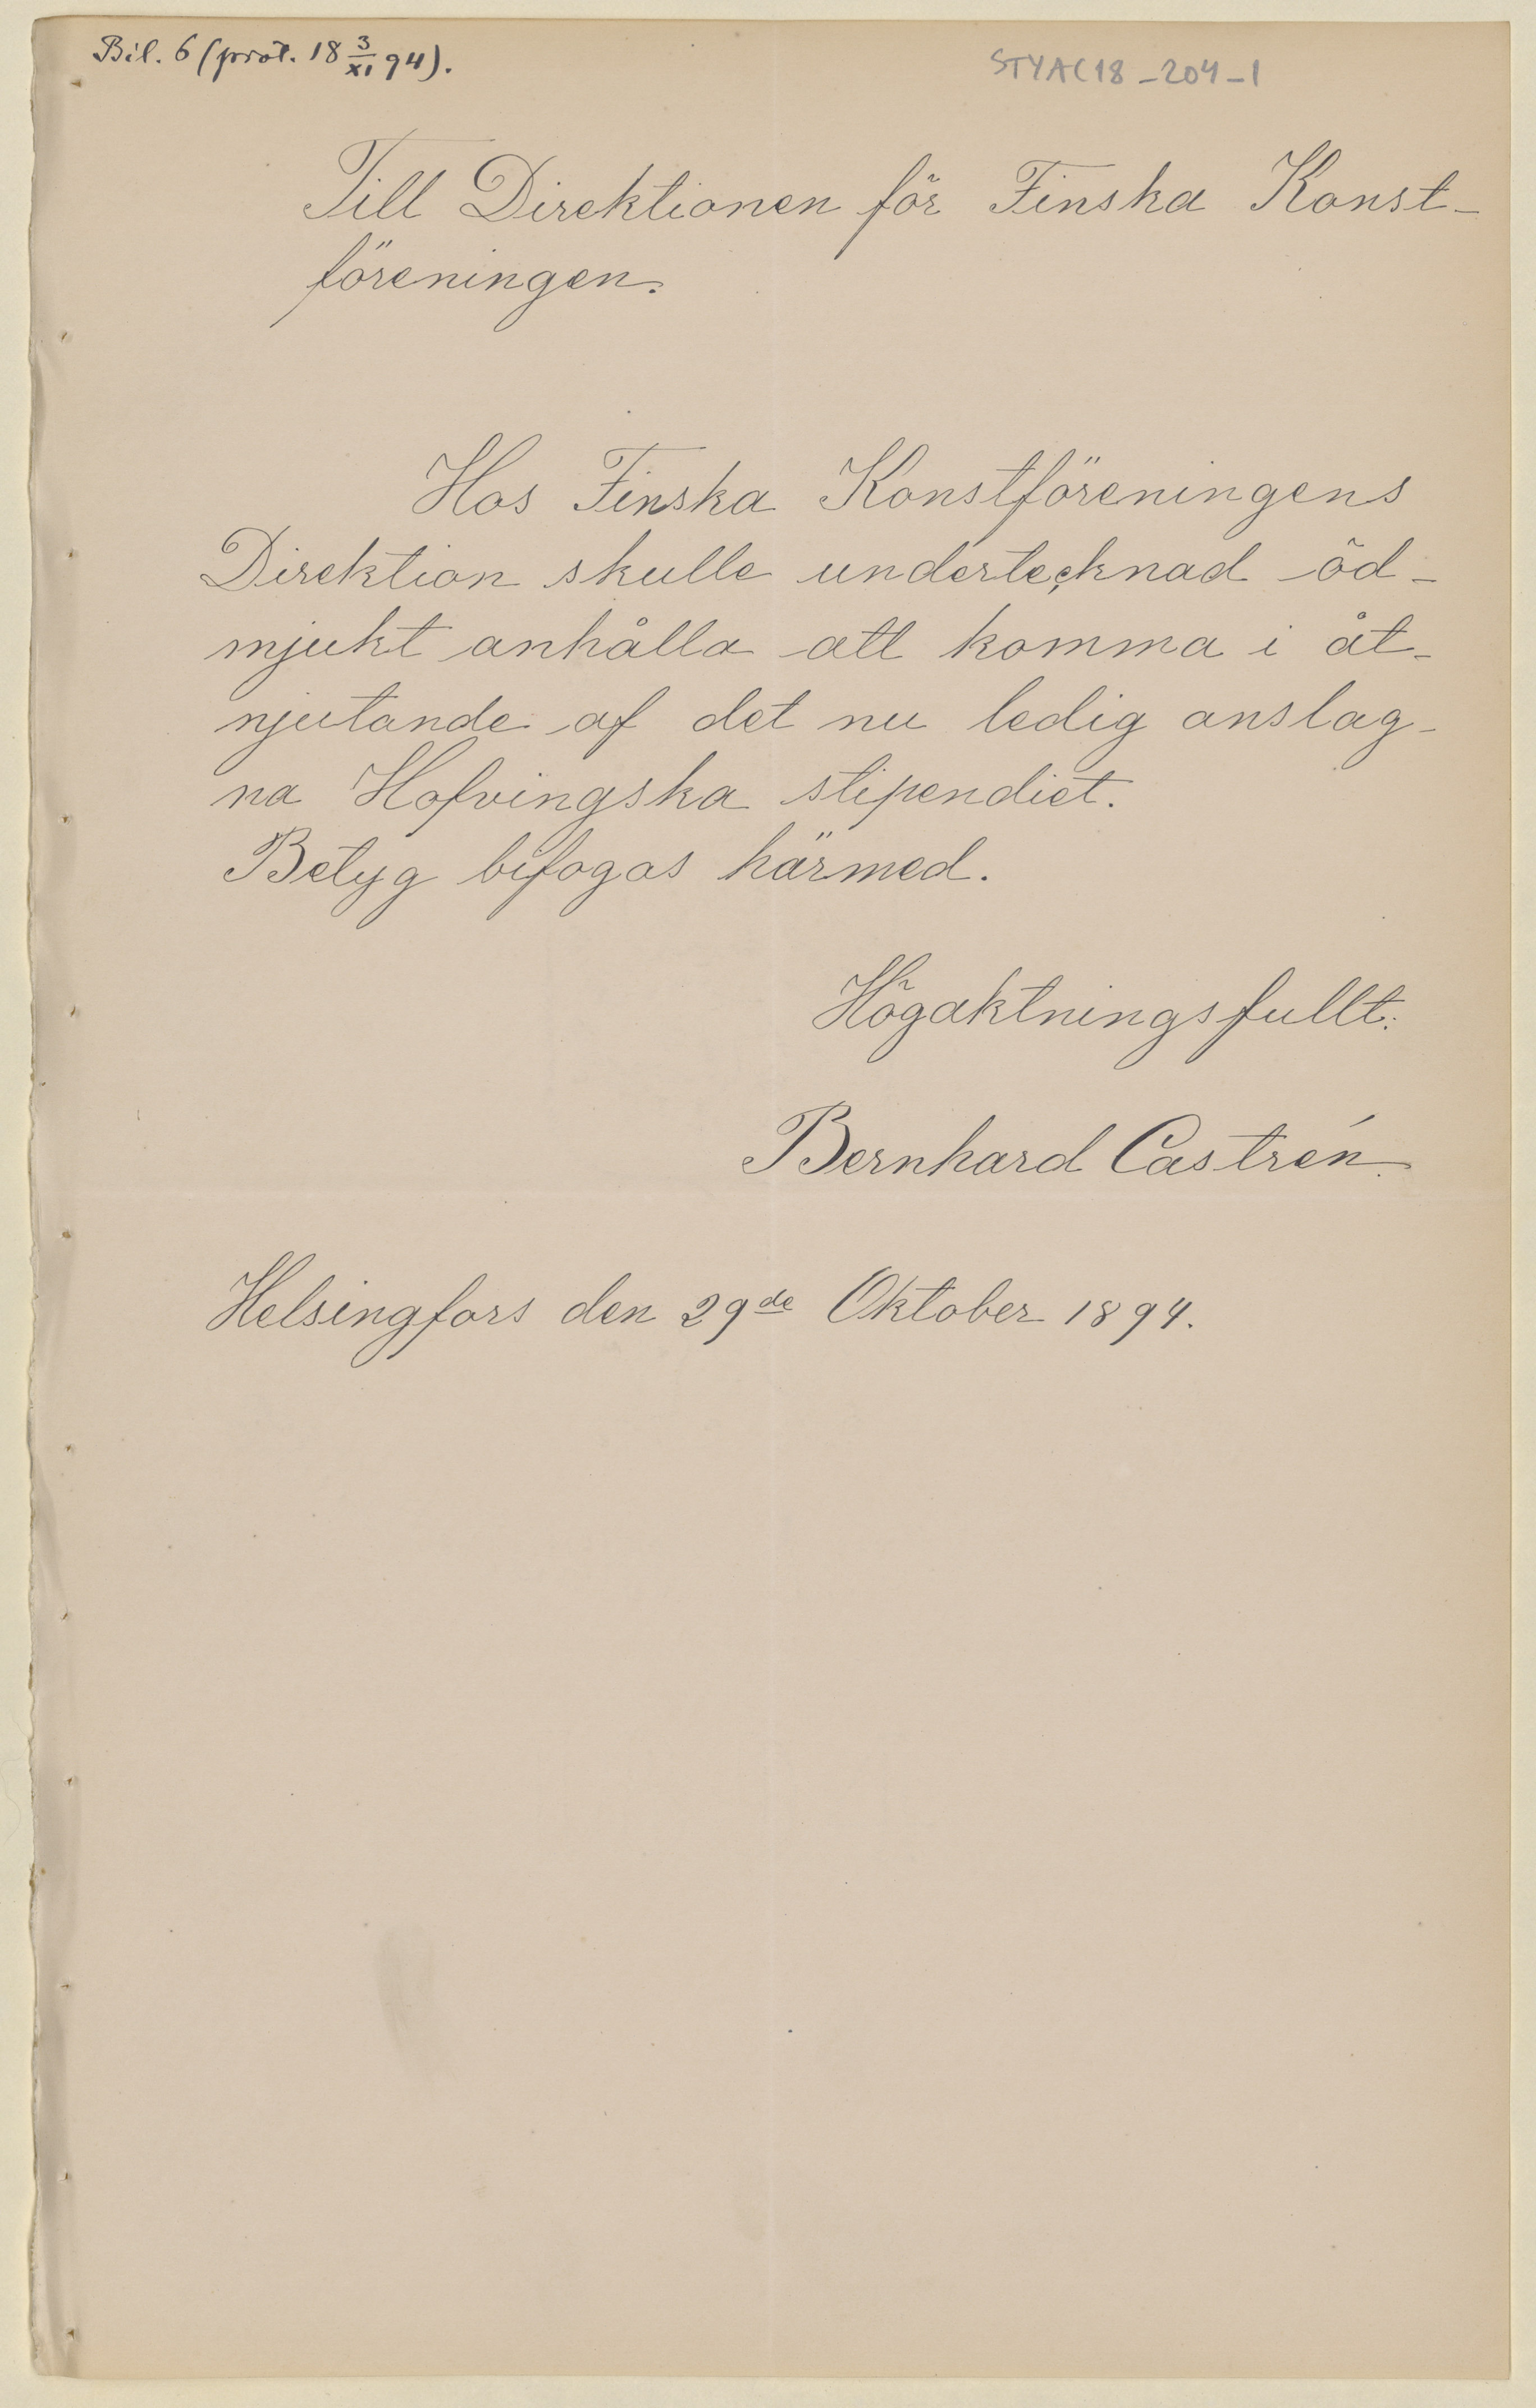 Bil. 6 (prot. 18 3/XI 94).
STYAC18_204_1
Till Direktionen för Finska Konst-
föreningen.
Hos Finska Konstföreningens
Direktion skulle undertecknad öd-
mjukt anhålla att komma i åt-
njutande af det nu ledig anslag-
na Hofvingska stipendiet.
Betyg bifogas härmed.
Högaktningsfullt:
Bernhard Castrén.
Helsingfors den 29de Oktober 1894.